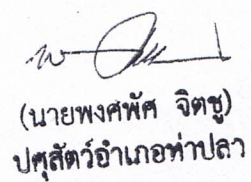 (นายพงศพัศ จิตชู)
ปศุสัตว์อำเภอท่าปลา